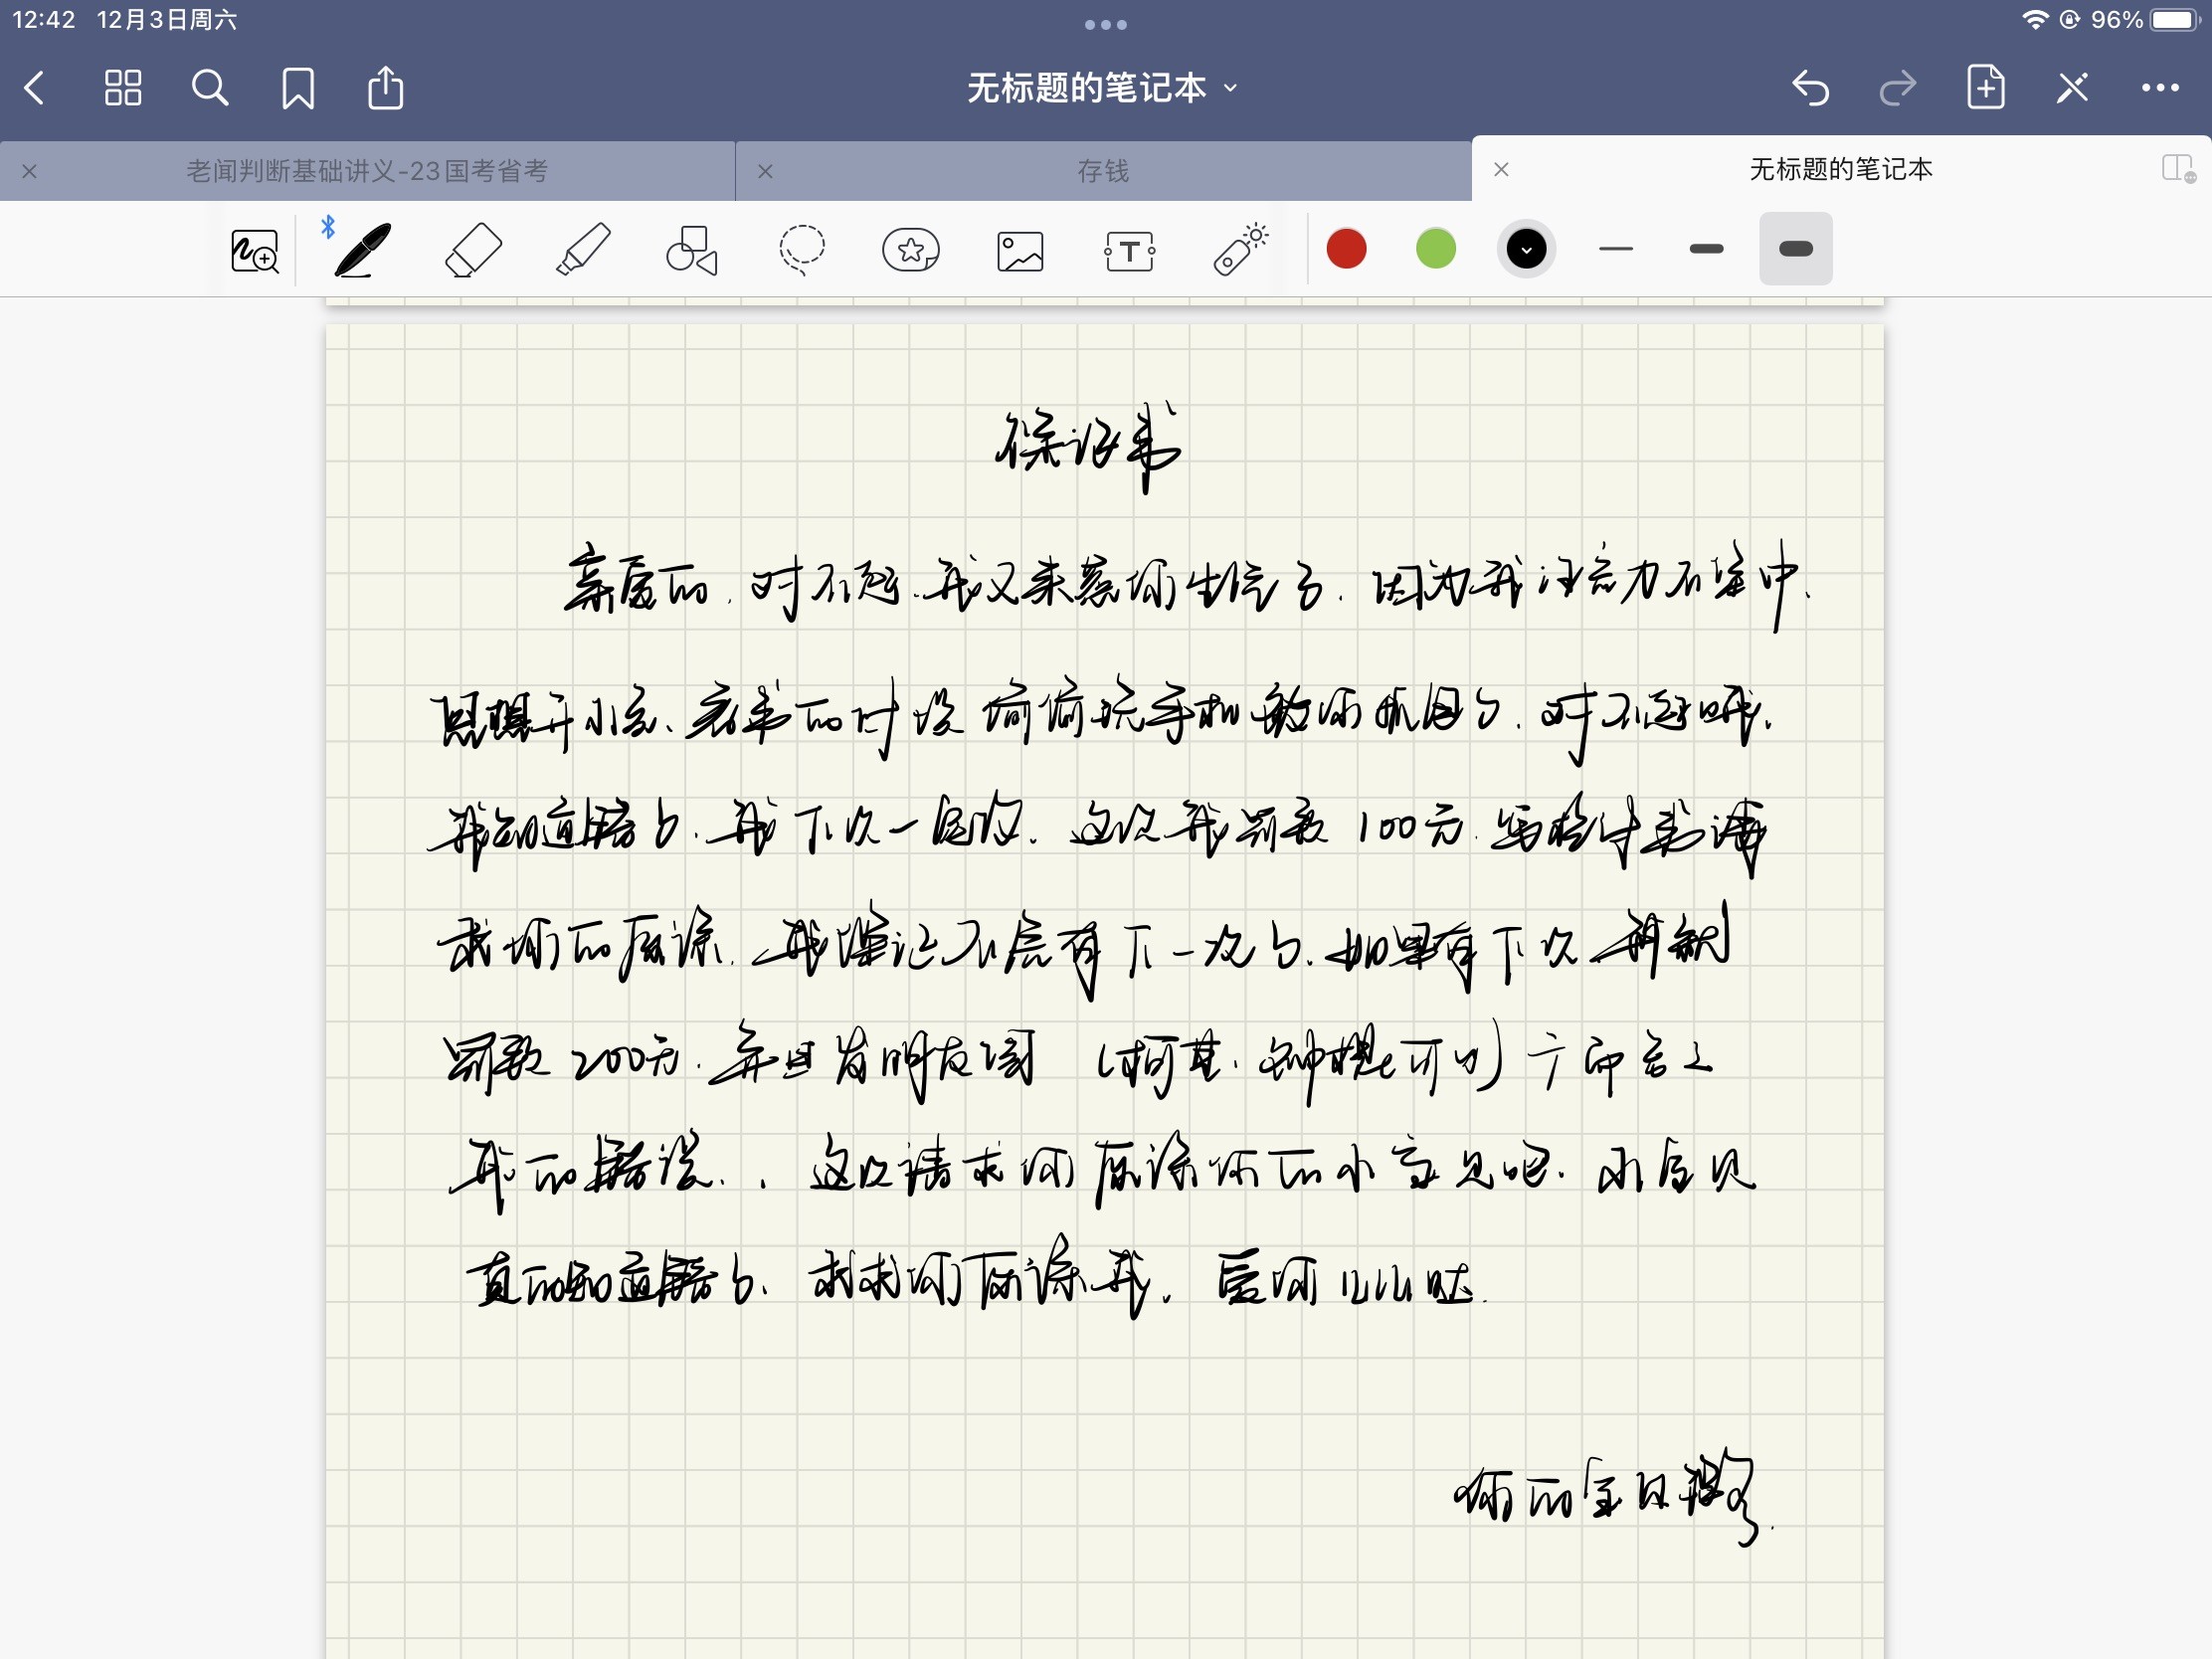 12:42 12月3日周六 96%
无标题的笔记本
老闻判断基础讲义-23国考省考 存钱 无标题的笔记本
T
保证书
亲爱的,对不起.我又来惹你生气了.因为我注意力不集中.
开小差、看书的时候偷偷玩手机被你抓包了.对不起哦.
我知道错了.我下次一定改.这次我罚款100元.写检讨书请
求你的原谅.我保证不会有下一次了.如果有下次
罚款200元.并且发朋友圈 ( 可以)广而告之
我的错误..这次请求你原谅你的小宝贝吧.小宝贝
真的知道错了.求求你原谅我.爱你 哒.
你的宝贝